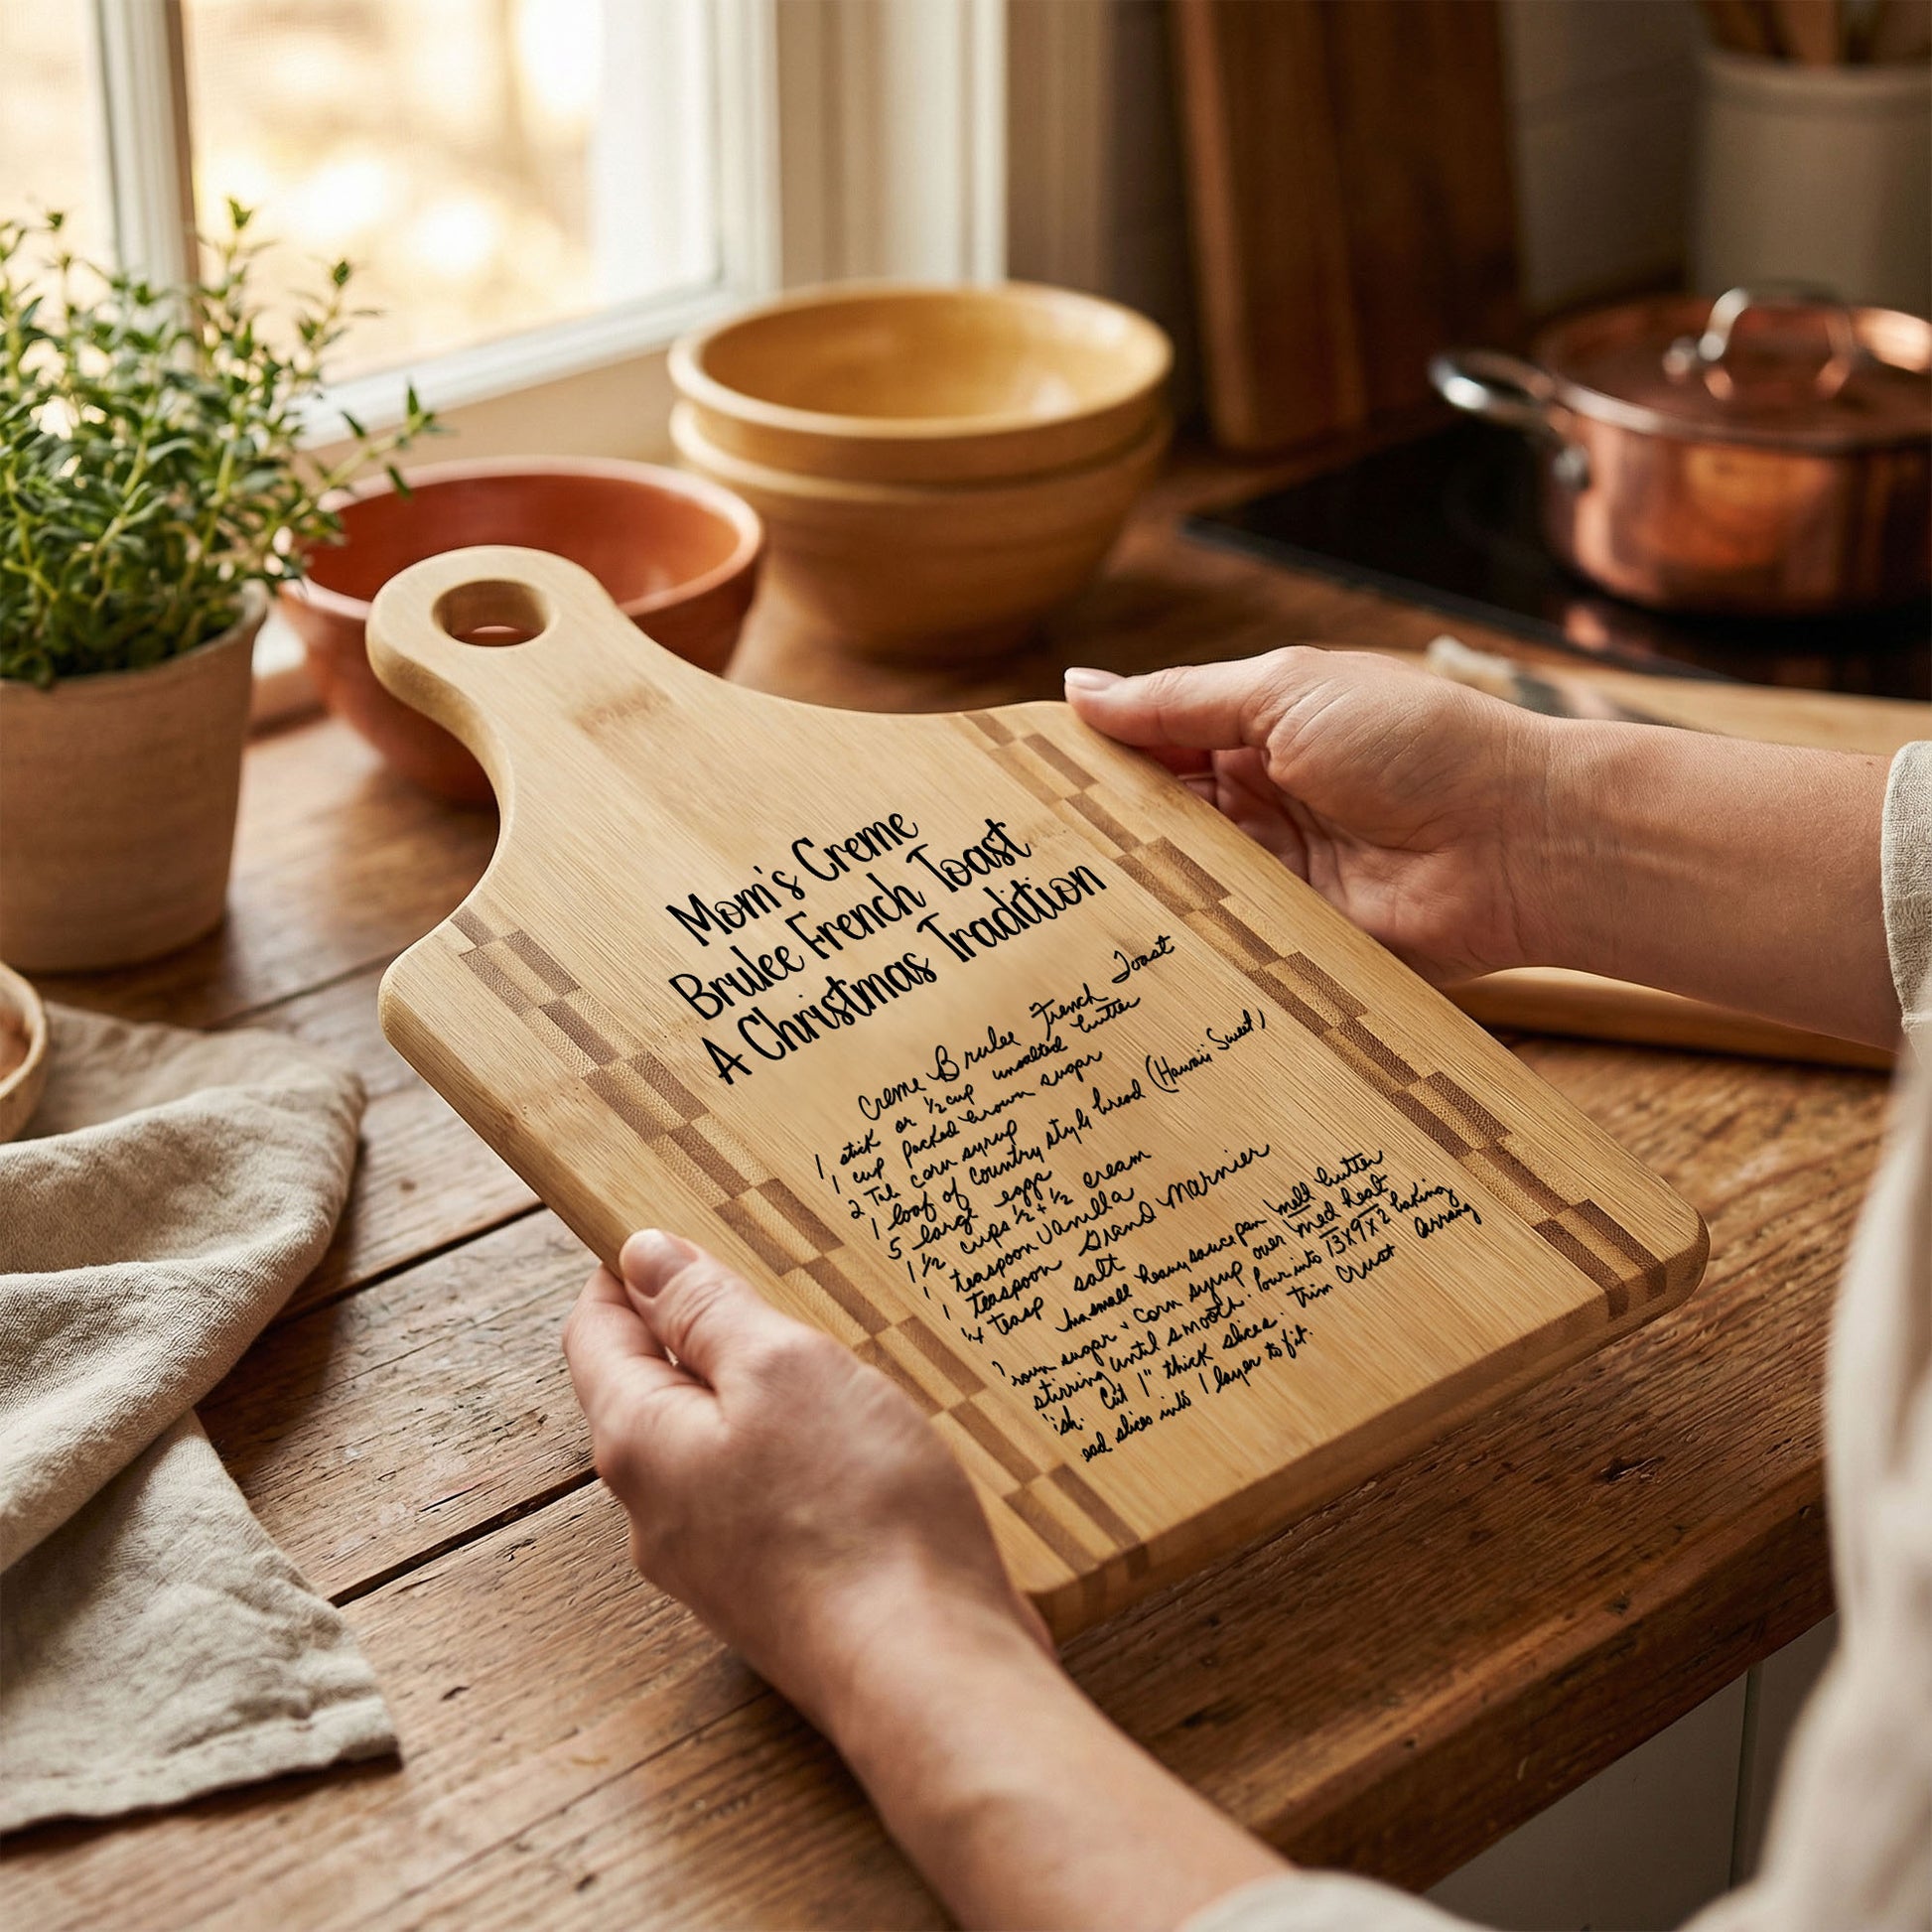 Mom's Creme
Brulee French Toast
A Christmas Tradition
Creme Brulee French Toast
1 stick or 1/2 cup unsalted butter
1 cup packed brown sugar
2 Tbl corn syrup
1 loaf of country style bread (Hawaii Sweet)
5 large eggs
1 1/2 cups 1/2 + 1/2 cream
1 teaspoon Vanilla
1 teaspoon Grand Marnier
1/4 teasp salt
In small heavy sauce pan melt butter
rown sugar + corn syrup over med heat
stirring until smooth. Pour into 13x9x2 baking
ish. Cut 1" thick slices. trim crust arrang
ead slices into 1 layer to fit.